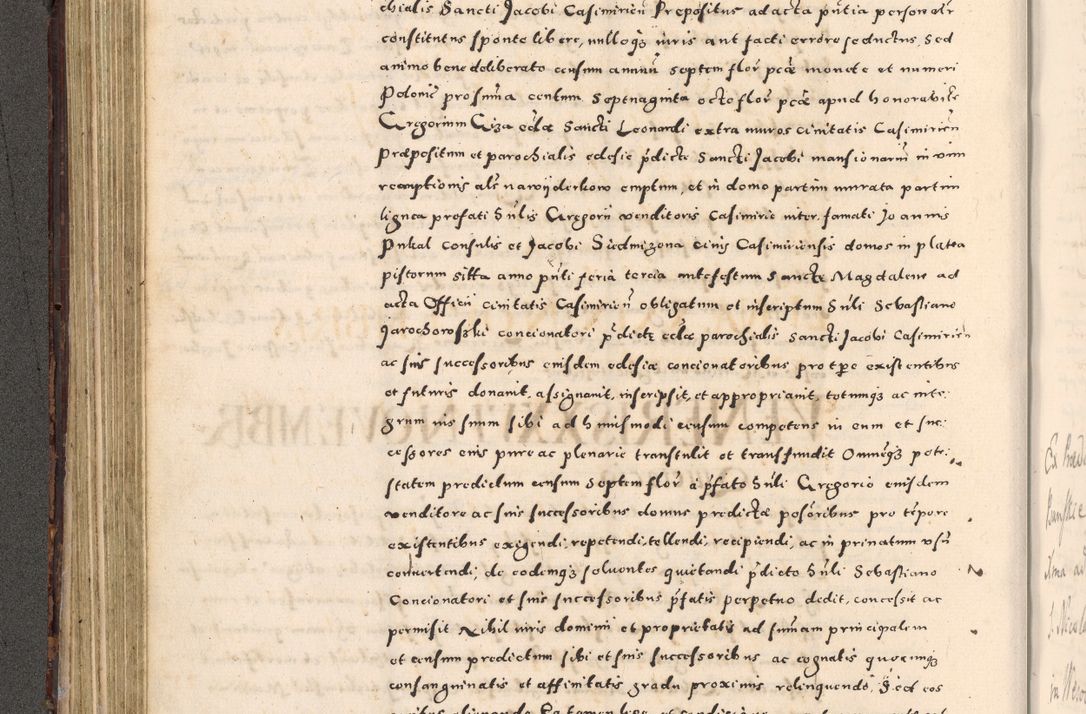 chialis Sancti Jacobi Casimirien Prepositus ad acta pñtia personalr
constitutus sponte libere, nulloqz iuris aut facti errore seductus, Sed
animo bene deliberato censum annuũ septem flor pcæ monete et numeri
Polonic pro suma centum Septuaginta octo flor pcæ apud honorabile
Gregorium Giza eclæ Sancti Leonardi extra muros civitatis Casimirien
Præpositum et parochialis eclesie pdicte Sancti Jacobi mansionariũ in vim
reemptionis als nawyderkow emptum, et in domo partim murata partim
lignea prefati Hulis Gregorii venditoris Casimirie inter famati Joannis
Pukal Consulis et Jacobi Siedmizona civis Casimiriensis domos in platea
pistorum sitta anno pñti feria tercia ante festum Sanctæ Magdalene ad
acta Officii civitatis Casimirien obligatum et inscriptum Huli Sebastiano
Jarochorowski concionatori pdictę eclæ parochialis Sancti Jacobi Casimirien
ac suis successoribus eiusdem eclesiæ concionatoribus pro tpe existentibus
et futuris donavit, assignavit, inscripsit, et appropriavit, totumqz ac inte-
grum ius suum sibi ad huiusmodi censum competens in eum et suc-
cessores eius pure ac plenarie transtulit et transfundit Omneqz pote-
statem predictum censum septem flor à pfato Huli Gregorio eiusdem
venditore ac suis successoribus domus predictæ possoribus pro tēpore
existentibus exigendi, repetendi, tollendi, recipiendi, ac in privatum usũ
convertendi, de eodemqz solventes quietandi pdicto Huli Sebastiano
Concionatori et suis successoribus pfatis perpetuo dedit, concessit ac
permisit Nihil iuris dominii et proprietatis ad sumam principalem
et censum predictum sibi et suis successoribus ac cognatis quocunqz
consanguinitatis et affinitatis gradu proximis relinquendo, Sed eos